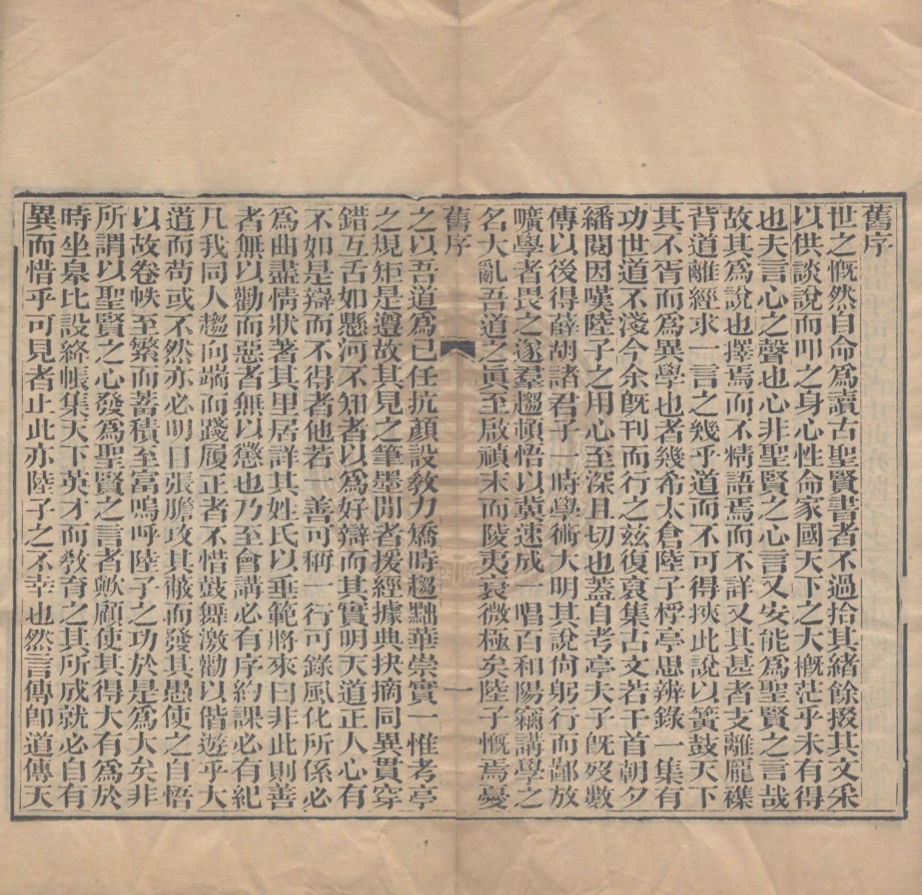 舊序
世之慨然自命爲讀古聖賢書者不過拾其緒餘掇其文采
以供談說而叩之身心性命家國天下之大槪茫乎未有得
也夫言心之聲也心非聖賢之心言又安能爲聖賢之言哉
故其爲說也擇焉而不精語焉而不詳又其甚者支離龎襍
背道離經求一言之幾乎道而不可得挾此說以簧鼓天下
其不胥而爲異學也者幾希太倉陸子桴亭思辨錄一集有
功世道不淺今余旣刊而行之茲復裒集古文若干首朝夕
繙閱因嘆陸子之用心至深且切也蓋自考亭夫子旣歿數
傳以後得薛胡諸君子一時學術大明其說尙躬行而鄙放
曠學者畏之遂羣趨頓悟以冀速成一唱百和陽竊講學之
名大亂吾道之眞至啟禎末而陵夷衰微極矣陸子慨焉憂
舊序
一
之以吾道爲己任抗顏設敎力矯時趨黜華崇實一惟考亭
之規矩是遵故其見之筆墨閒者援經據典抉摘同異貫穿
錯互舌如懸河不知者以爲好辯而其實明天道正人心有
不如是辯而不得者他若一善可稱一行可錄風化所係必
爲曲盡情狀著其里居詳其姓氏以垂範將來曰非此則善
者無以勸而惡者無以懲也乃至會講必有序約課必有紀
凡我同人趨向端而踐履正者不惜鼓舞激勸以偕遊乎大
道而苟或不然亦必明目張膽攻其蔽而發其愚使之自悟
以故卷帙至繁而蓄積至富嗚呼陸子之功於是爲大矣非
所謂以聖賢之心發爲聖賢之言者歟顧使其得大有爲於
時坐臯比設絳帳集天下英才而敎育之其所成就必自有
異而惜乎可見者止此亦陸子之不幸也然言傳卽道傳天